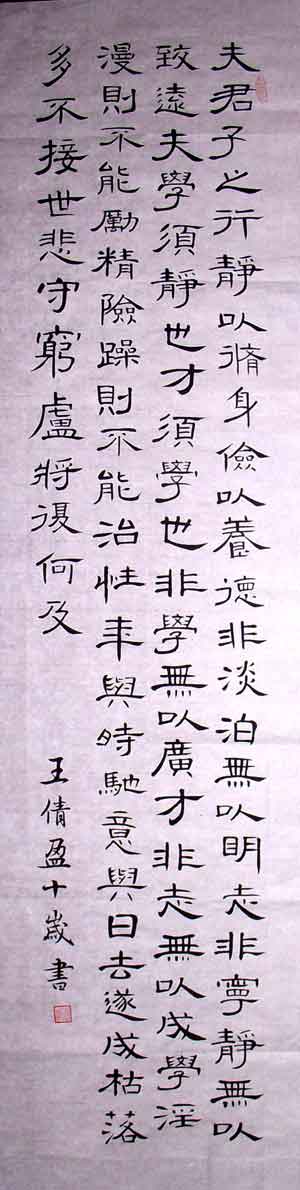 夫君子之行靜以脩身儉以養德非淡泊無以明志非寧靜無以
致遠夫學須靜也才須學也非學無以廣才非志無以成學淫
漫則不能勵精險躁則不能治性年與時馳意與日去遂成枯落
多不接世悲守窮盧將復何及
王倩盈十歲書